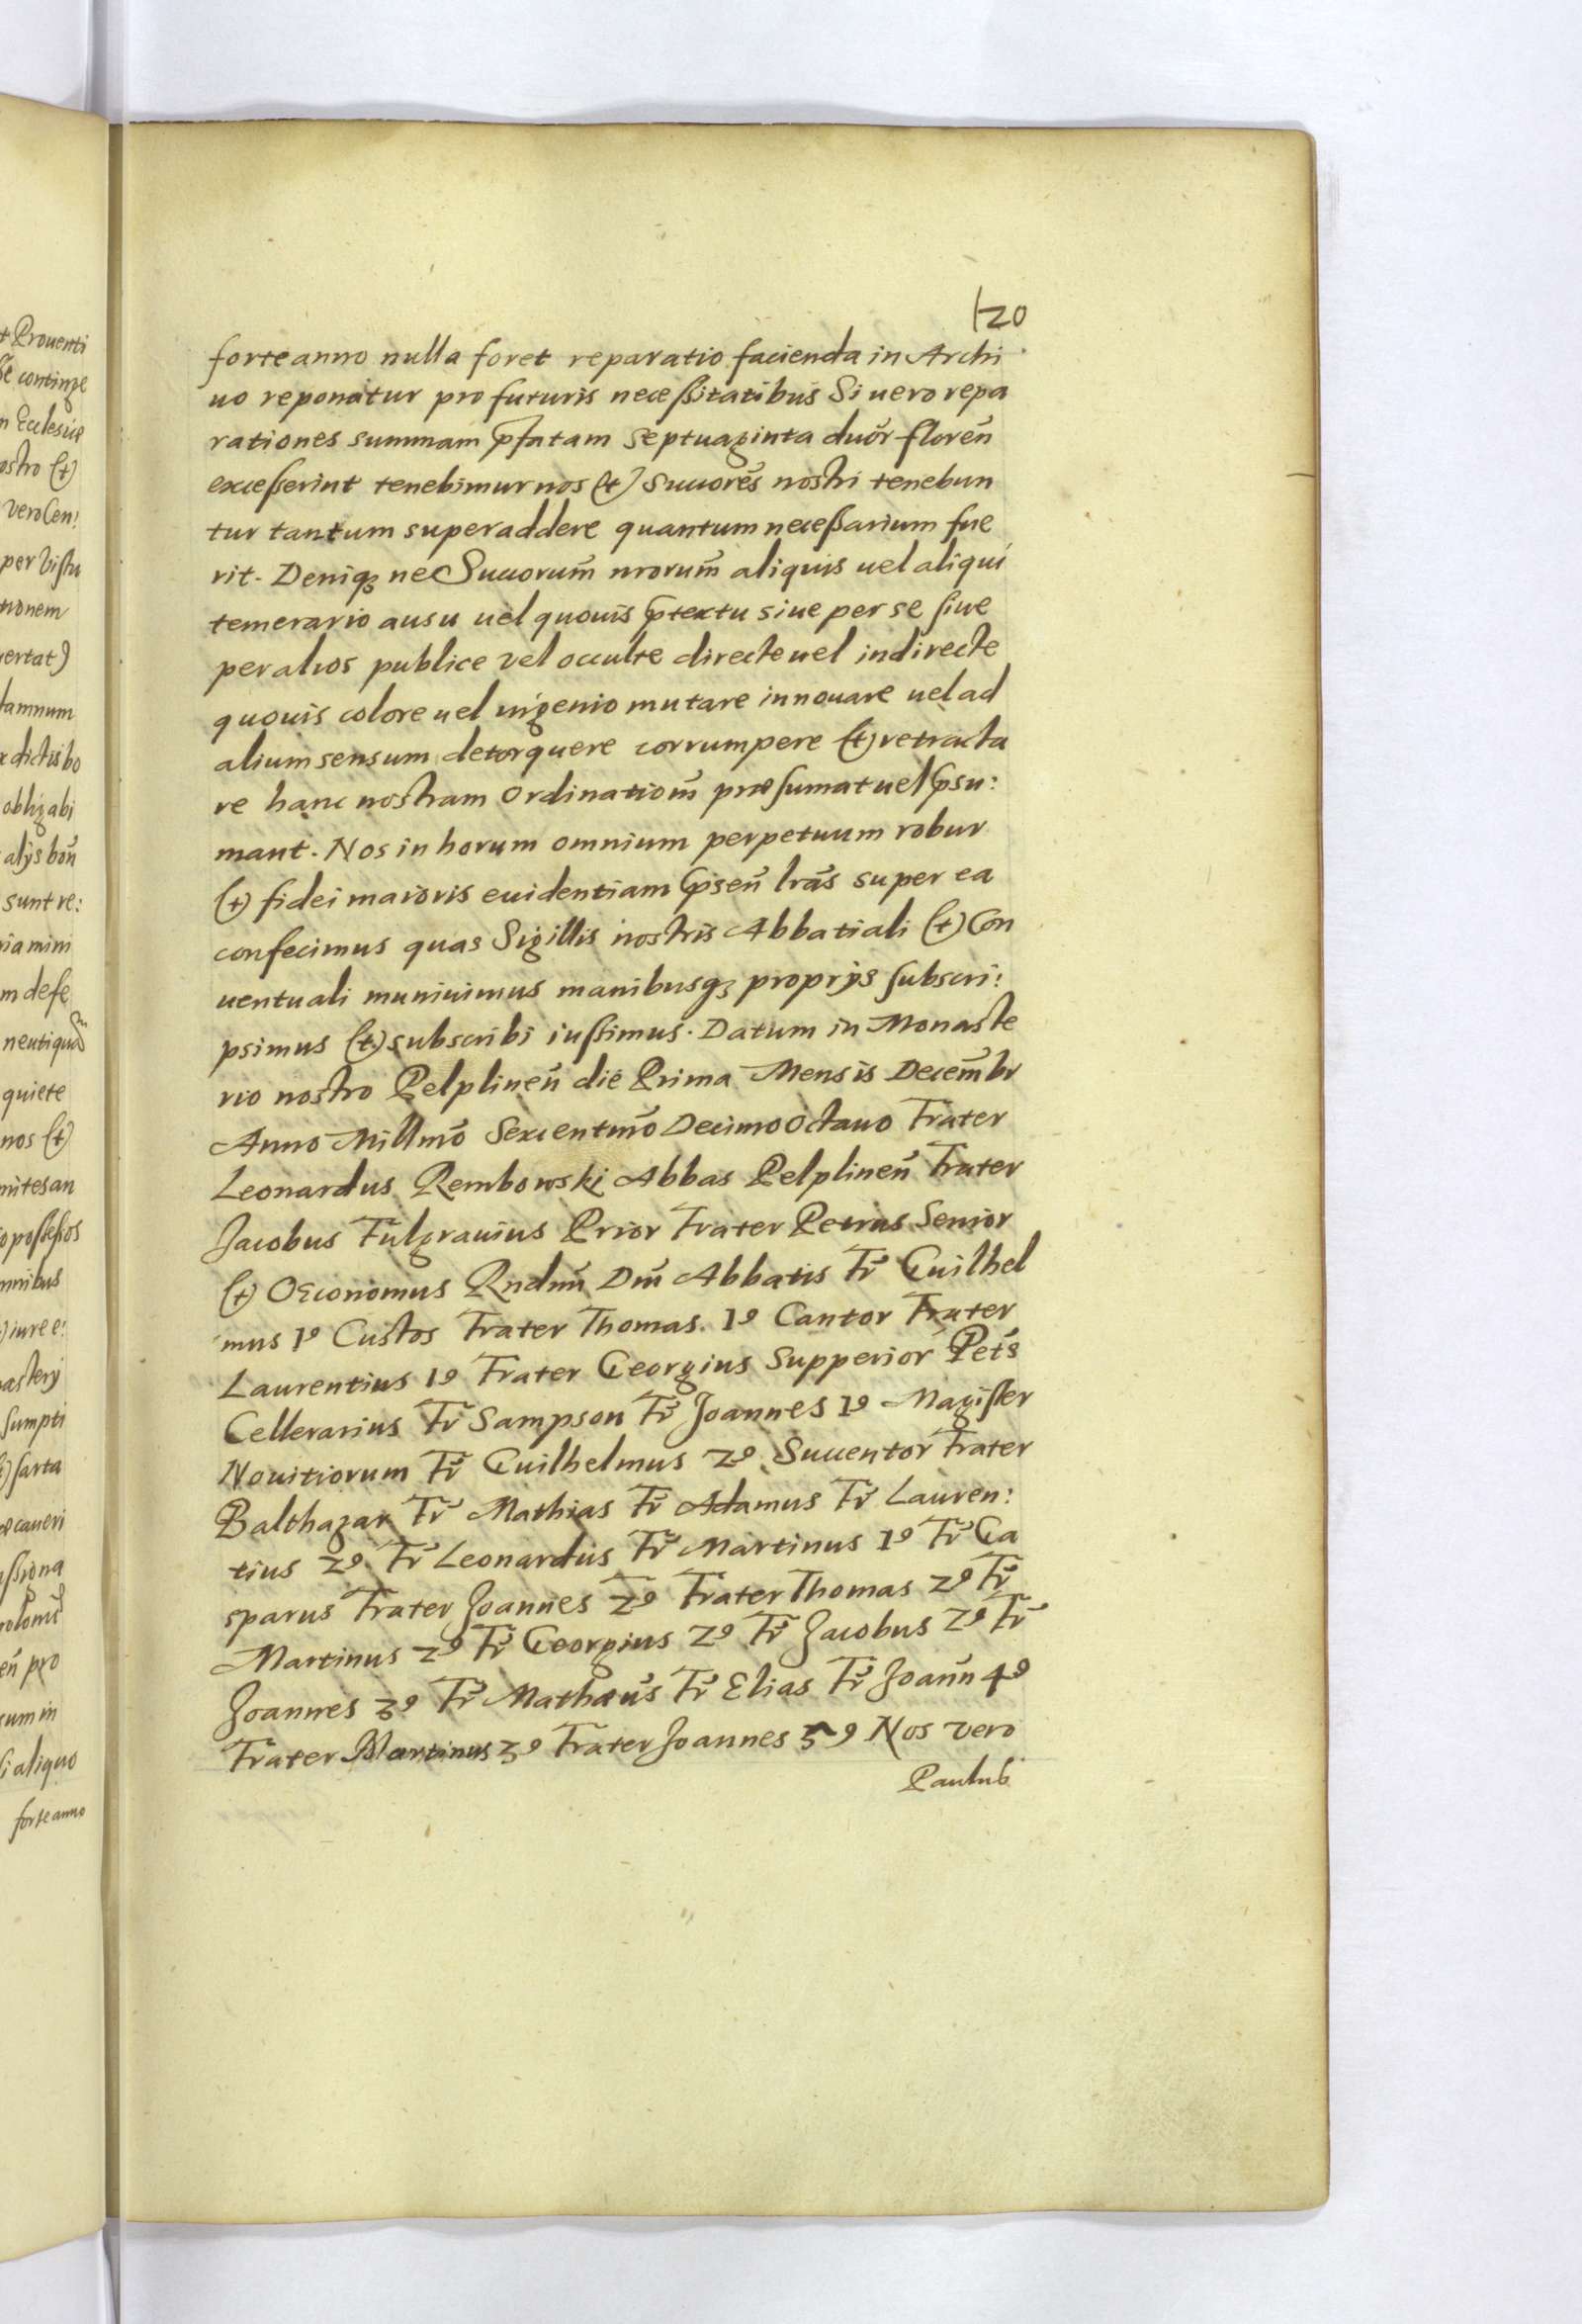 120
forte anno nulla foret reparatio facienda in Archi
uo reponatur pro futuris neceßitatibus Si uero repa
rationes summam p̃fatam septuaginta duor̃ floreñ
exceßerint tenebimur nos (et) Succorẽs nostri tenebun
tur tantum superaddere quantum neceßarium fue
rit. Deniqꝫ ne Succorum̃ nrorum̃ aliquis uel aliqui
temerario ausu uel quouis p̃textu siue per se siue
per alios publice vel occulte directe uel indirecte
quouis colore uel ingenio mutare innouare uel ad
alium sensum detorquere corrumpere (et) retracta
re hanc nostram Ordinatiom̃ præsumat uel p̃su:
mant. Nos in horum omnium perpetuum robur
(et) fidei maioris euidentiam p̃señ lrãs super ea
confecimus quas Sigillis nostris Abbatiali (et) Con
uentuali muniuimus manibusqꝫ proprijs subscri:
psimus (et) subscribi iußimus. Datum in Monaste
rio nostro Pelplineñ die Prima Mensis Decem̃br
Anno Millmõ Sexcentmõ Decimo Octauo Frater
Leonardus Rembowski Abbas Pelplineñ Frater
Jacobus Fulgrauius Prior Frater Petrus Senior
(et) Oeconomus Rndmĩ Dnĩ Abbatis Fr̃ Guilhel
mus 1⁹ Custos Frater Thomas. 1⁹ Cantor Frater
Laurentius 1⁹ Frater Georgius Supperior Pet̃s
Cellerarius Fr̃ Sampson Fr̃ Joannes 1⁹ Magister
Nouitiorum Fr̃ Guilhelmus 2⁹. Succentor Frater
Balthazar Fr̃ Mathias Fr̃ Adamus Fr̃ Lauren:
tius 2⁹. Fr̃ Leonardus Fr̃ Martinus 1⁹ Fr̃ Ca
sparus Frater Joannes 2⁹ Frater Thomas 2⁹ Fr̃
Martinus 2⁹ Fr̃ Georgius 2⁹ Fr̃ Jacobus 2⁹ Fr̃
Joannes 3⁹ Fr̃ Mathæus Fr̃ Elias Fr̃ Joañn 4⁹
Frater Martinus 3⁹ Frater Joannes 5⁹ Nos vero
Paulus